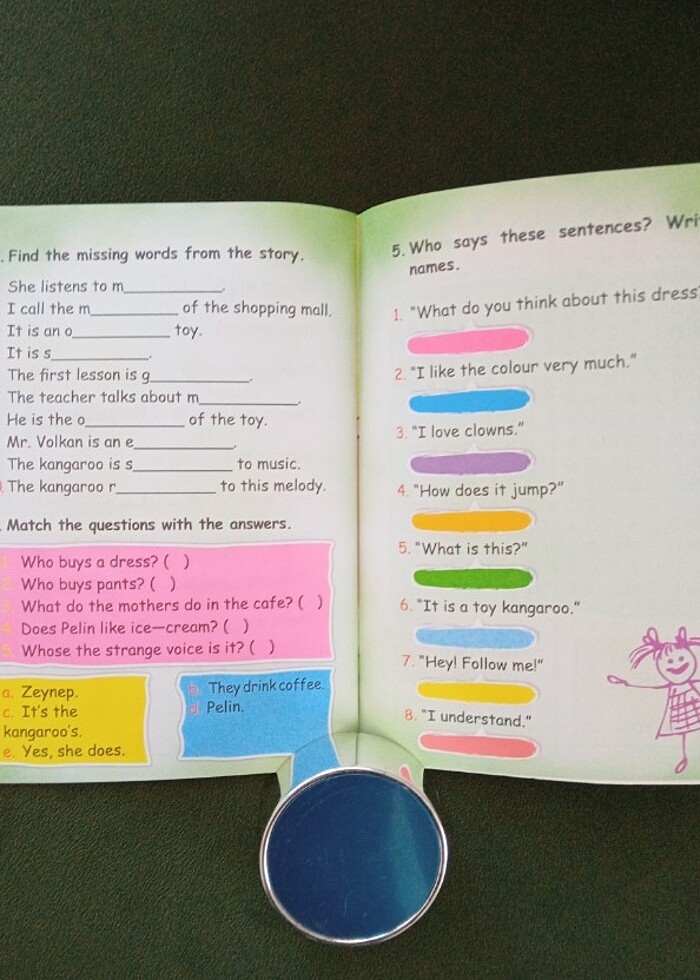 . Find the missing words from the story.
She listens to m____________.
I call the m____________ of the shopping mall.
It is an o____________ toy.
It is s____________.
The first lesson is g____________.
The teacher talks about m____________.
He is the o____________ of the toy.
Mr. Volkan is an e____________.
The kangaroo is s____________ to music.
The kangaroo r____________ to this melody.
. Match the questions with the answers.
1. Who buys a dress? ( )
2. Who buys pants? ( )
3. What do the mothers do in the cafe? ( )
4. Does Pelin like ice—cream? ( )
5. Whose the strange voice is it? ( )
a. Zeynep.
c. It's the
kangaroo's.
e. Yes, she does.
b. They drink coffee.
d. Pelin.
5. Who says these sentences? Wri
names.
1. "What do you think about this dress?
2. "I like the colour very much."
3. "I love clowns."
4. "How does it jump?"
5. "What is this?"
6. "It is a toy kangaroo."
7. "Hey! Follow me!"
8. "I understand."